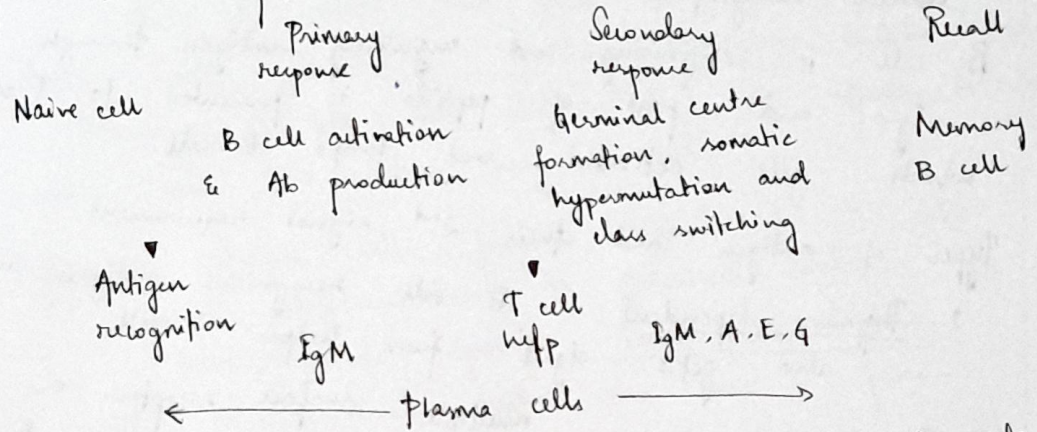 Primary
response
Secondary
response
Recall
Naive cell
B cell activation
& Ab production
Germinal centre
formation, somatic
hypermutation and
class switching
Memory
B cell
Antigen
recognition
IgM
T cell
help
IgM, A, E, G
Plasma cells